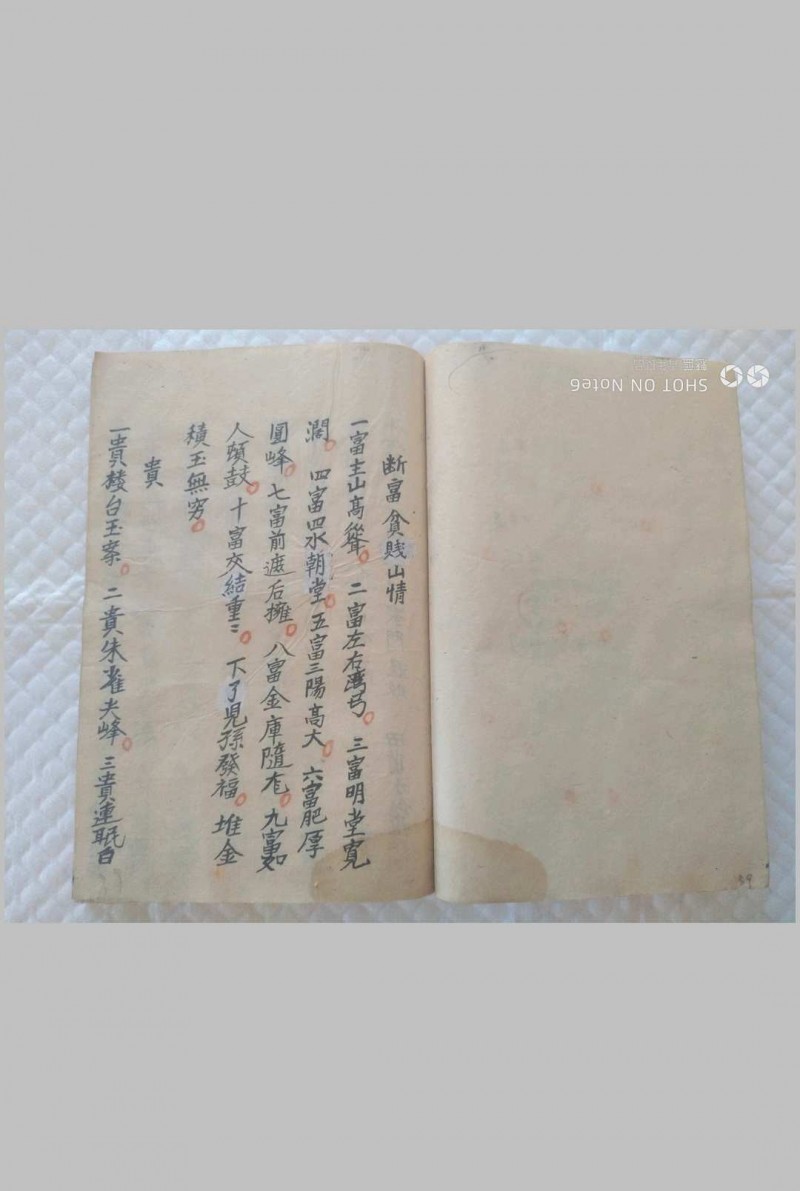 断富貧賎山情
一富主山高聳。二富左右湾弓。三富明堂寛
濶。四富四水朝堂。五富三陽高大。六富肥厚
圓峰。七富前遮后擁。八富金庫隨　。九富如
人頓鼓。十富交結重〻。下了児孫發福。堆金
積玉無穷。
貴
一貴楼台玉案。二貴朱雀尖峰。三貴連　白
SHOT ON Note6
39